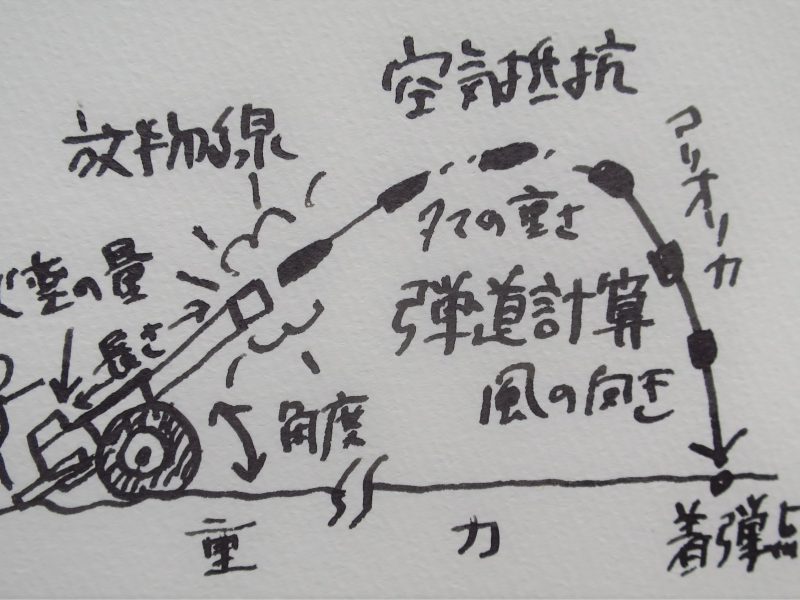 空気抵抗
放物線
コリオリ力
タマの重さ
火薬の量
弾道計算
長さ
風の向き
角度
重力
着弾点